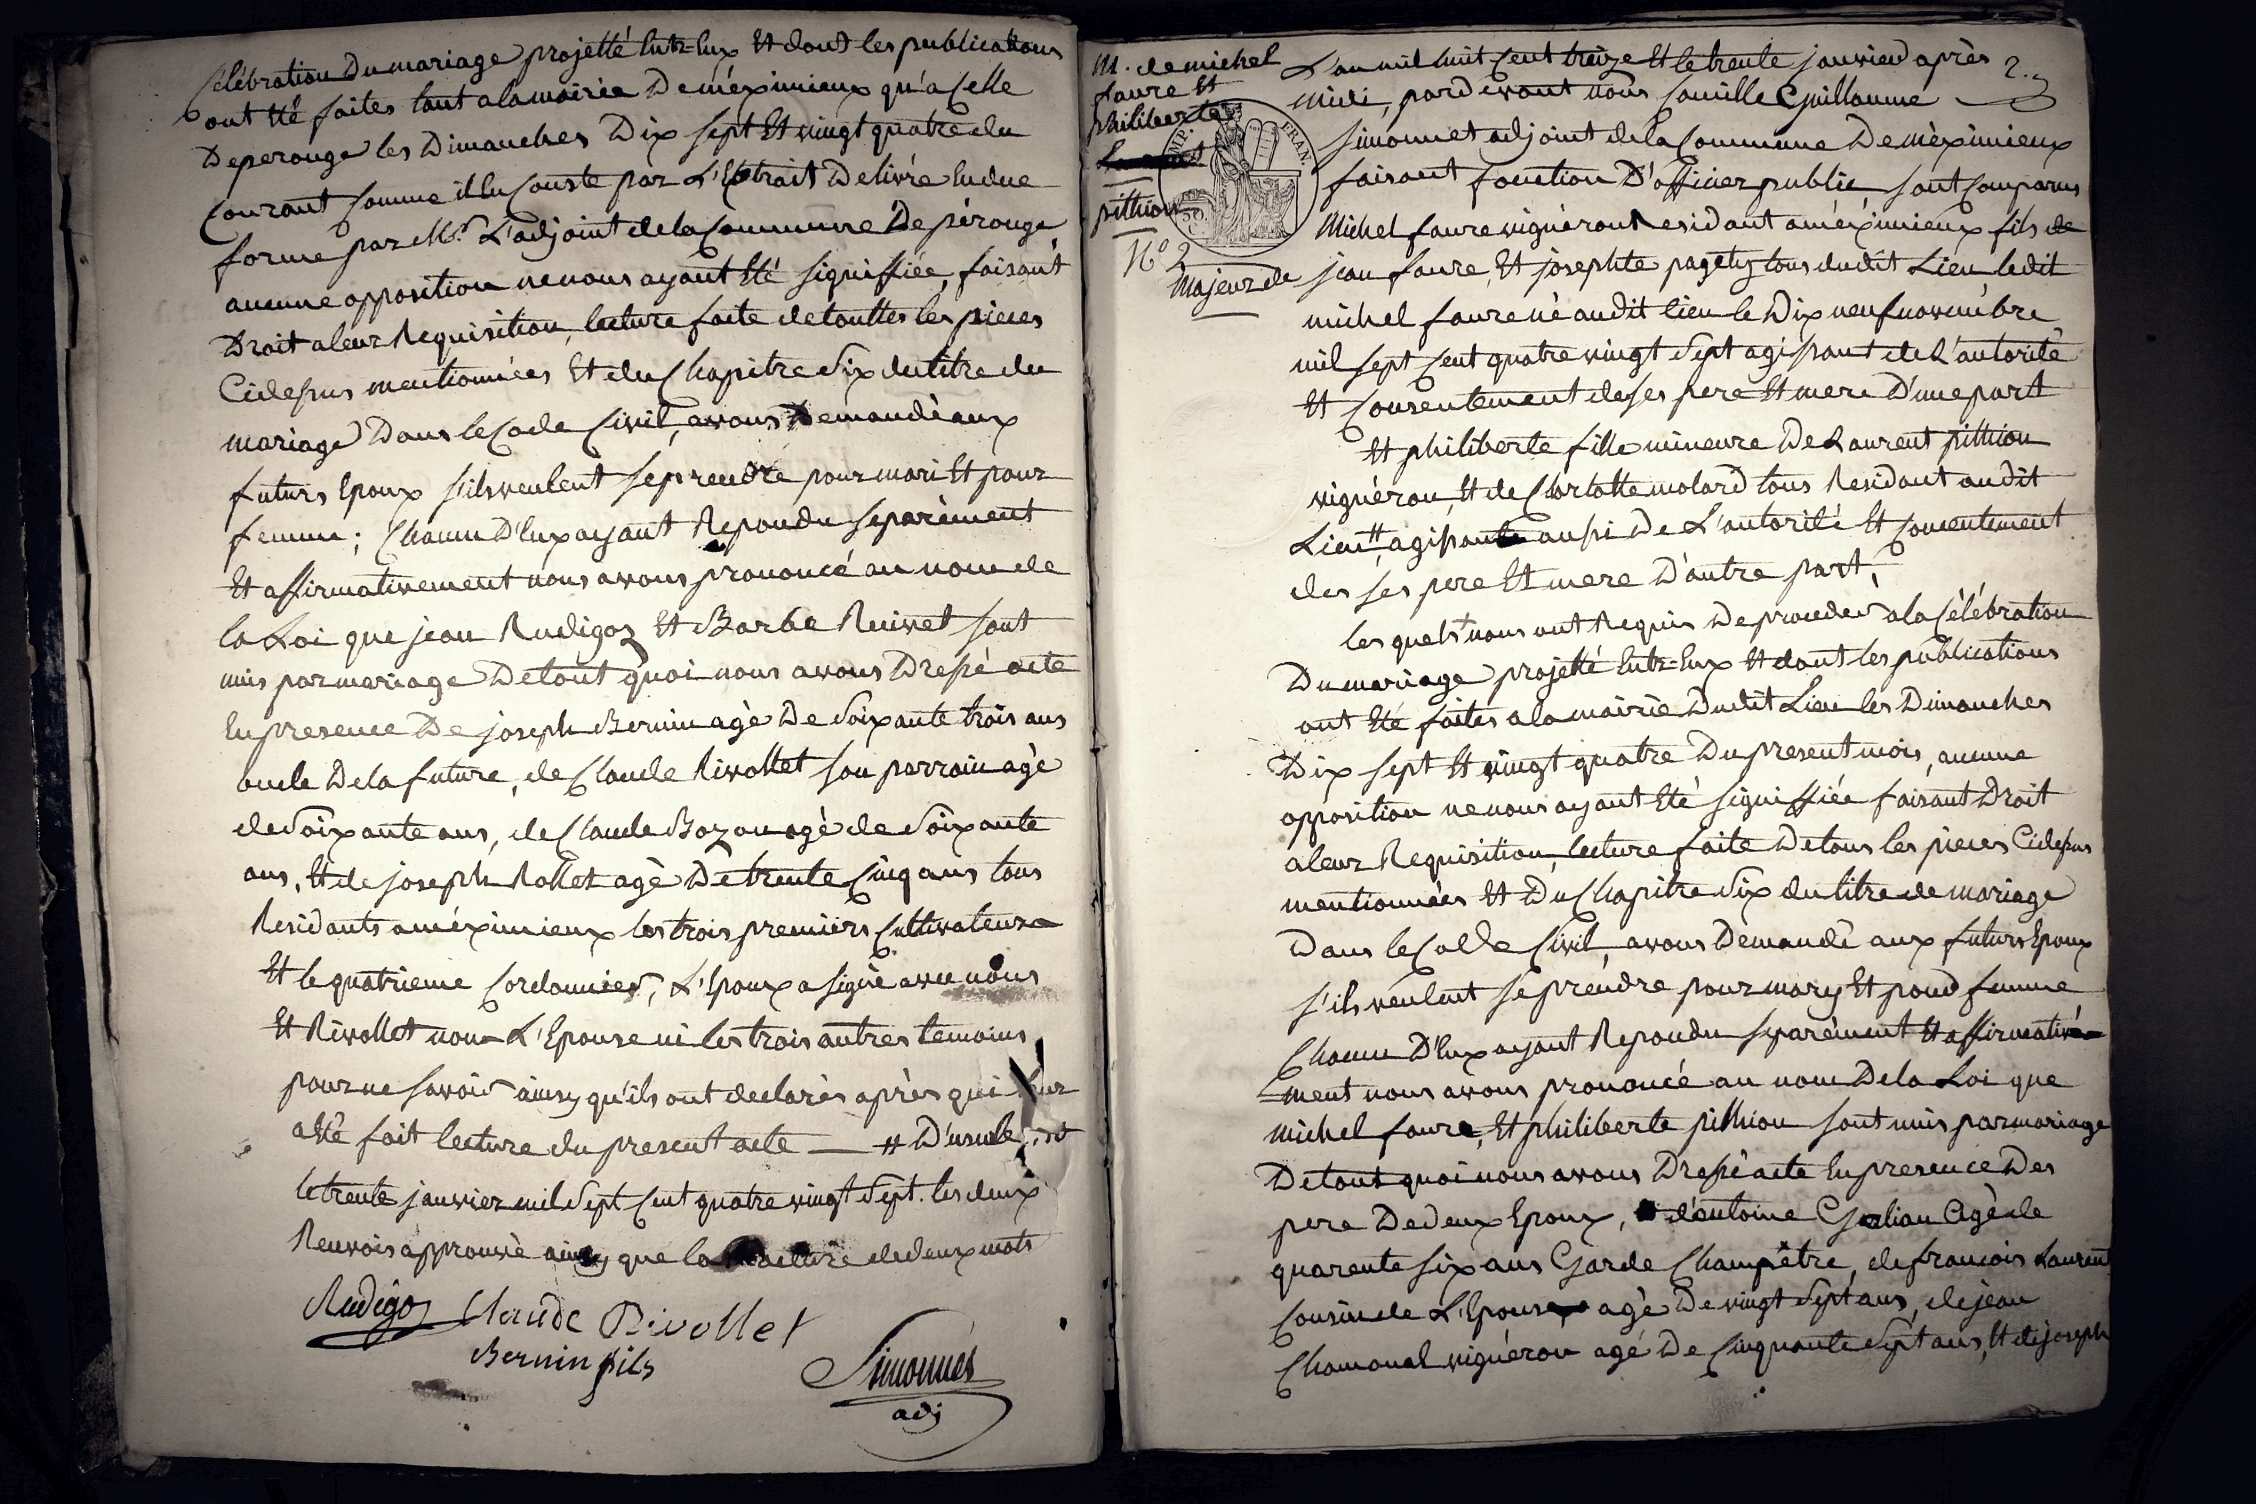 Célébration Du mariage projetté Entr=Eux Et dont les publications
ont Eté faites tant a la mairie De méximieux qu'a Celle
De perouge les Dimanches Dix sept Et vingt quatre du
Courant Comme il En Conste par L'Extrait Delivré En due
forme par Mr. L'adjoint de la Commune De pérouge
aucune opposition ne nous ayant Eté signiffiée, faisant
Droit a leur Requisition, lecture faite de touttes les pieces
Cidessus mentionnées Et du Chapitre Six du titre du
mariage Dans le Code Civil, avons Demandé aux
futurs Epoux s'ils veulent se prendre pour mari Et pour
femme; Chacun D'Eux ayant Repondu separément
Et affirmativement nous avons prononcé au nom de
la Loi que jean Rudigoz Et Barbe Ruivet sont
unis par mariage De tout quoi nous avons Dressé acte
En presence De joseph Bernin agé De Soixante trois ans
oncle De la future, de Claude Rivollet son parrain agé
de Soixante ans, de Claude Bozon agé de Soixante
ans, Et de joseph Rollet agé De trente Cinq ans tous
Residants a méximieux les trois premiers Cultivateurs
Et le quatrieme Cordonnier, L'Epoux a signé avec nous
Et Rivollet non L'Epouse ni les trois autres temoins
pour ne savoir ainsy qu'ils ont declarés après qui leur
a Eté fait lecture du present acte — # D'usule
le trente janvier mil Sept Cent quatre vingt Sept. les deux
Renvois approuvé ainsy que la de deux mots
Rudigoz Claude Rivollet
Bernin fils
Simonnet
adj
M. de michel
faure Et
philiberte
pithion
N° 2
2.
L'an mil huit Cent treize Et le trente janvier après
Midi, pardevant nous Camille Guillaume
Simonnet adjoint de la Commune De méximieux
faisant fonction D'officier public sont Comparus
Michel faure vignéron Residant a méximieux fils
majeur de jean faure, Et josephte pagety tous dudit Lieu ledit
michel faure né audit lieu le Dix neuf novembre
mil sept Cent quatre vingt Sept agissant de L'autorité
Et Consentement de ses pere Et mere D'une part
Et philiberte fille mineure De Laurent pithion
vignéron, Et de Charlotte molard tous Residant audit
Lieu # agissante aussi De L'autorité Et Consentement
des ses pere Et mere D'autre part,
les quels nous ont Requis De proceder a la Célébration
Du mariage projetté Entr=Eux Et dont les publications
ont Eté faites a la mairie Dudit Lieu les Dimanches
Dix sept Et vingt quatre Du present mois, aucune
opposition ne nous ayant Eté signiffiée faisant Droit
a leur Requisition, lecture faite De tous les pieces Cidessus
mentionnées Et Du Chapitre Six du titre de mariage
Dans le Code Civil, avons Demandé aux futurs Epoux
s'ils veulent se prendre pour mary Et pour femme
Chacun D'Eux ayant Repondu separément Et affirmative
=ment nous avons prononcé au nom De la Loi que
michel faure, Et philiberte pithion sont unis par mariage
De tout quoi nous avons Dressé acte En presence Des
pere De deux Epoux, d'antoine Galian Agé de
quarente six ans Garde Champêtre, de francois Laurent
Cousin de L'Epouse agé De vingt Sept ans, de jean
Chamonal vignéron agé De Cinquante Sept ans, Et de joseph